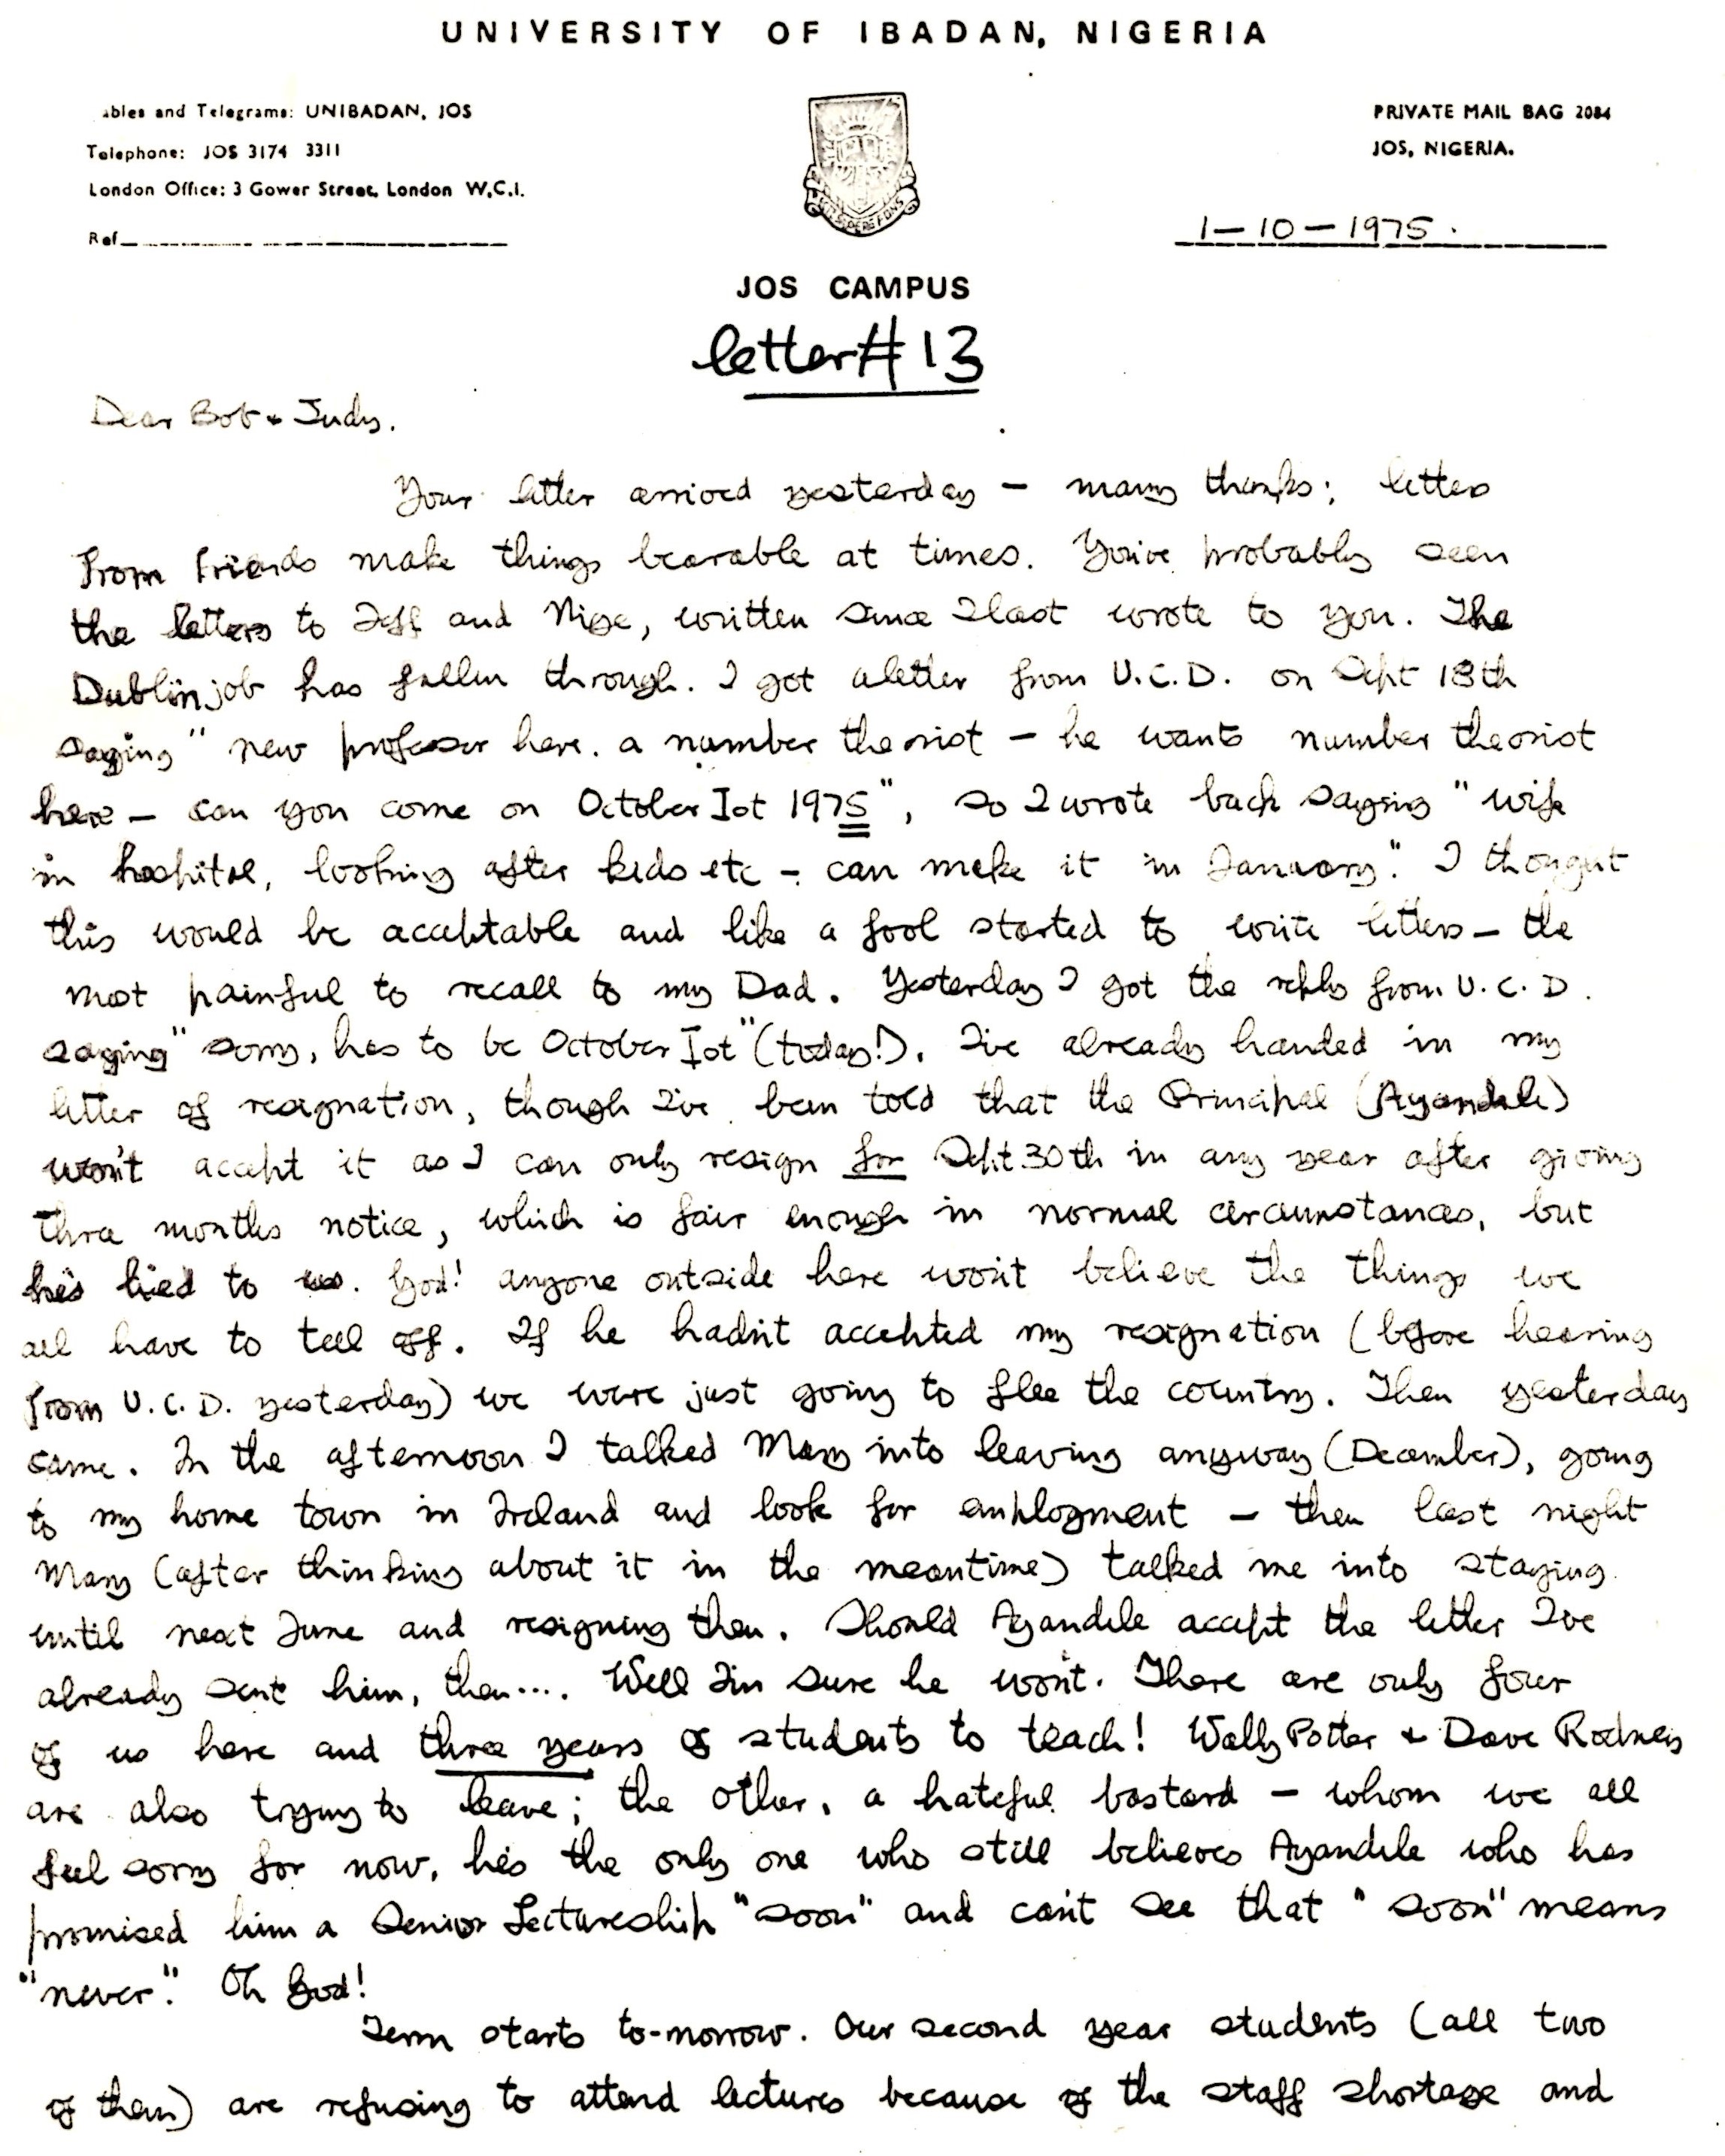 UNIVERSITY OF IBADAN, NIGERIA
ables and Telegrams: UNIBADAN, JOS
PRIVATE MAIL BAG 2084
Telephone: JOS 3174 3311
JOS, NIGERIA.
London Office: 3 Gower Street, London W.C.1.
Ref
1-10-1975.
JOS CAMPUS
letter # 13
Dear Bob & Judy.
Your letter arrived yesterday - many thanks; letters
from friends make things bearable at times. You've probably seen
the letters to Jeff and Nige, written since I last wrote to you. The
Dublin job has fallen through. I got a letter from U.C.D. on Sept 18th
saying "new professor here. a number theorist - he wants number theorist
here - can you come on October Ist 1975", so I wrote back saying "wife
in hospital, looking after kids etc - can make it in January." I thought
this would be acceptable and like a fool started to write letters - the
most painful to recall to my Dad. Yesterday I got the reply from U.C.D.
saying "sorry, has to be October Ist" (today!). I've already handed in my
letter of resignation, though I've been told that the Principal (Ayandele)
won't accept it as I can only resign for Sept 30th in any year after giving
three months notice, which is fair enough in normal circumstances, but
he's lied to us. God! anyone outside here won't believe the things we
all have to tell off. If he hadn't accepted my resignation (before hearing
from U.C.D. yesterday) we were just going to flee the country. Then yesterday
came. In the afternoon I talked Mary into leaving anyway (December), going
to my home town in Ireland and look for employment - then last night
Mary (after thinking about it in the meantime) talked me into staying
until next June and resigning then. Should Ayandele accept the letter I've
already sent him, then.... Well I'm sure he won't. There are only four
of us here and three years of students to teach! Wally Potter & Dave Rodney
are also trying to leave; the other, a hateful bastard - whom we all
feel sorry for now, he's the only one who still believes Ayandele who has
promised him a Senior Lectureship "soon" and can't see that "soon" means
"never." Oh God!
Term starts to-morrow. Our second year students (all two
of them) are refusing to attend lectures because of the staff shortage and